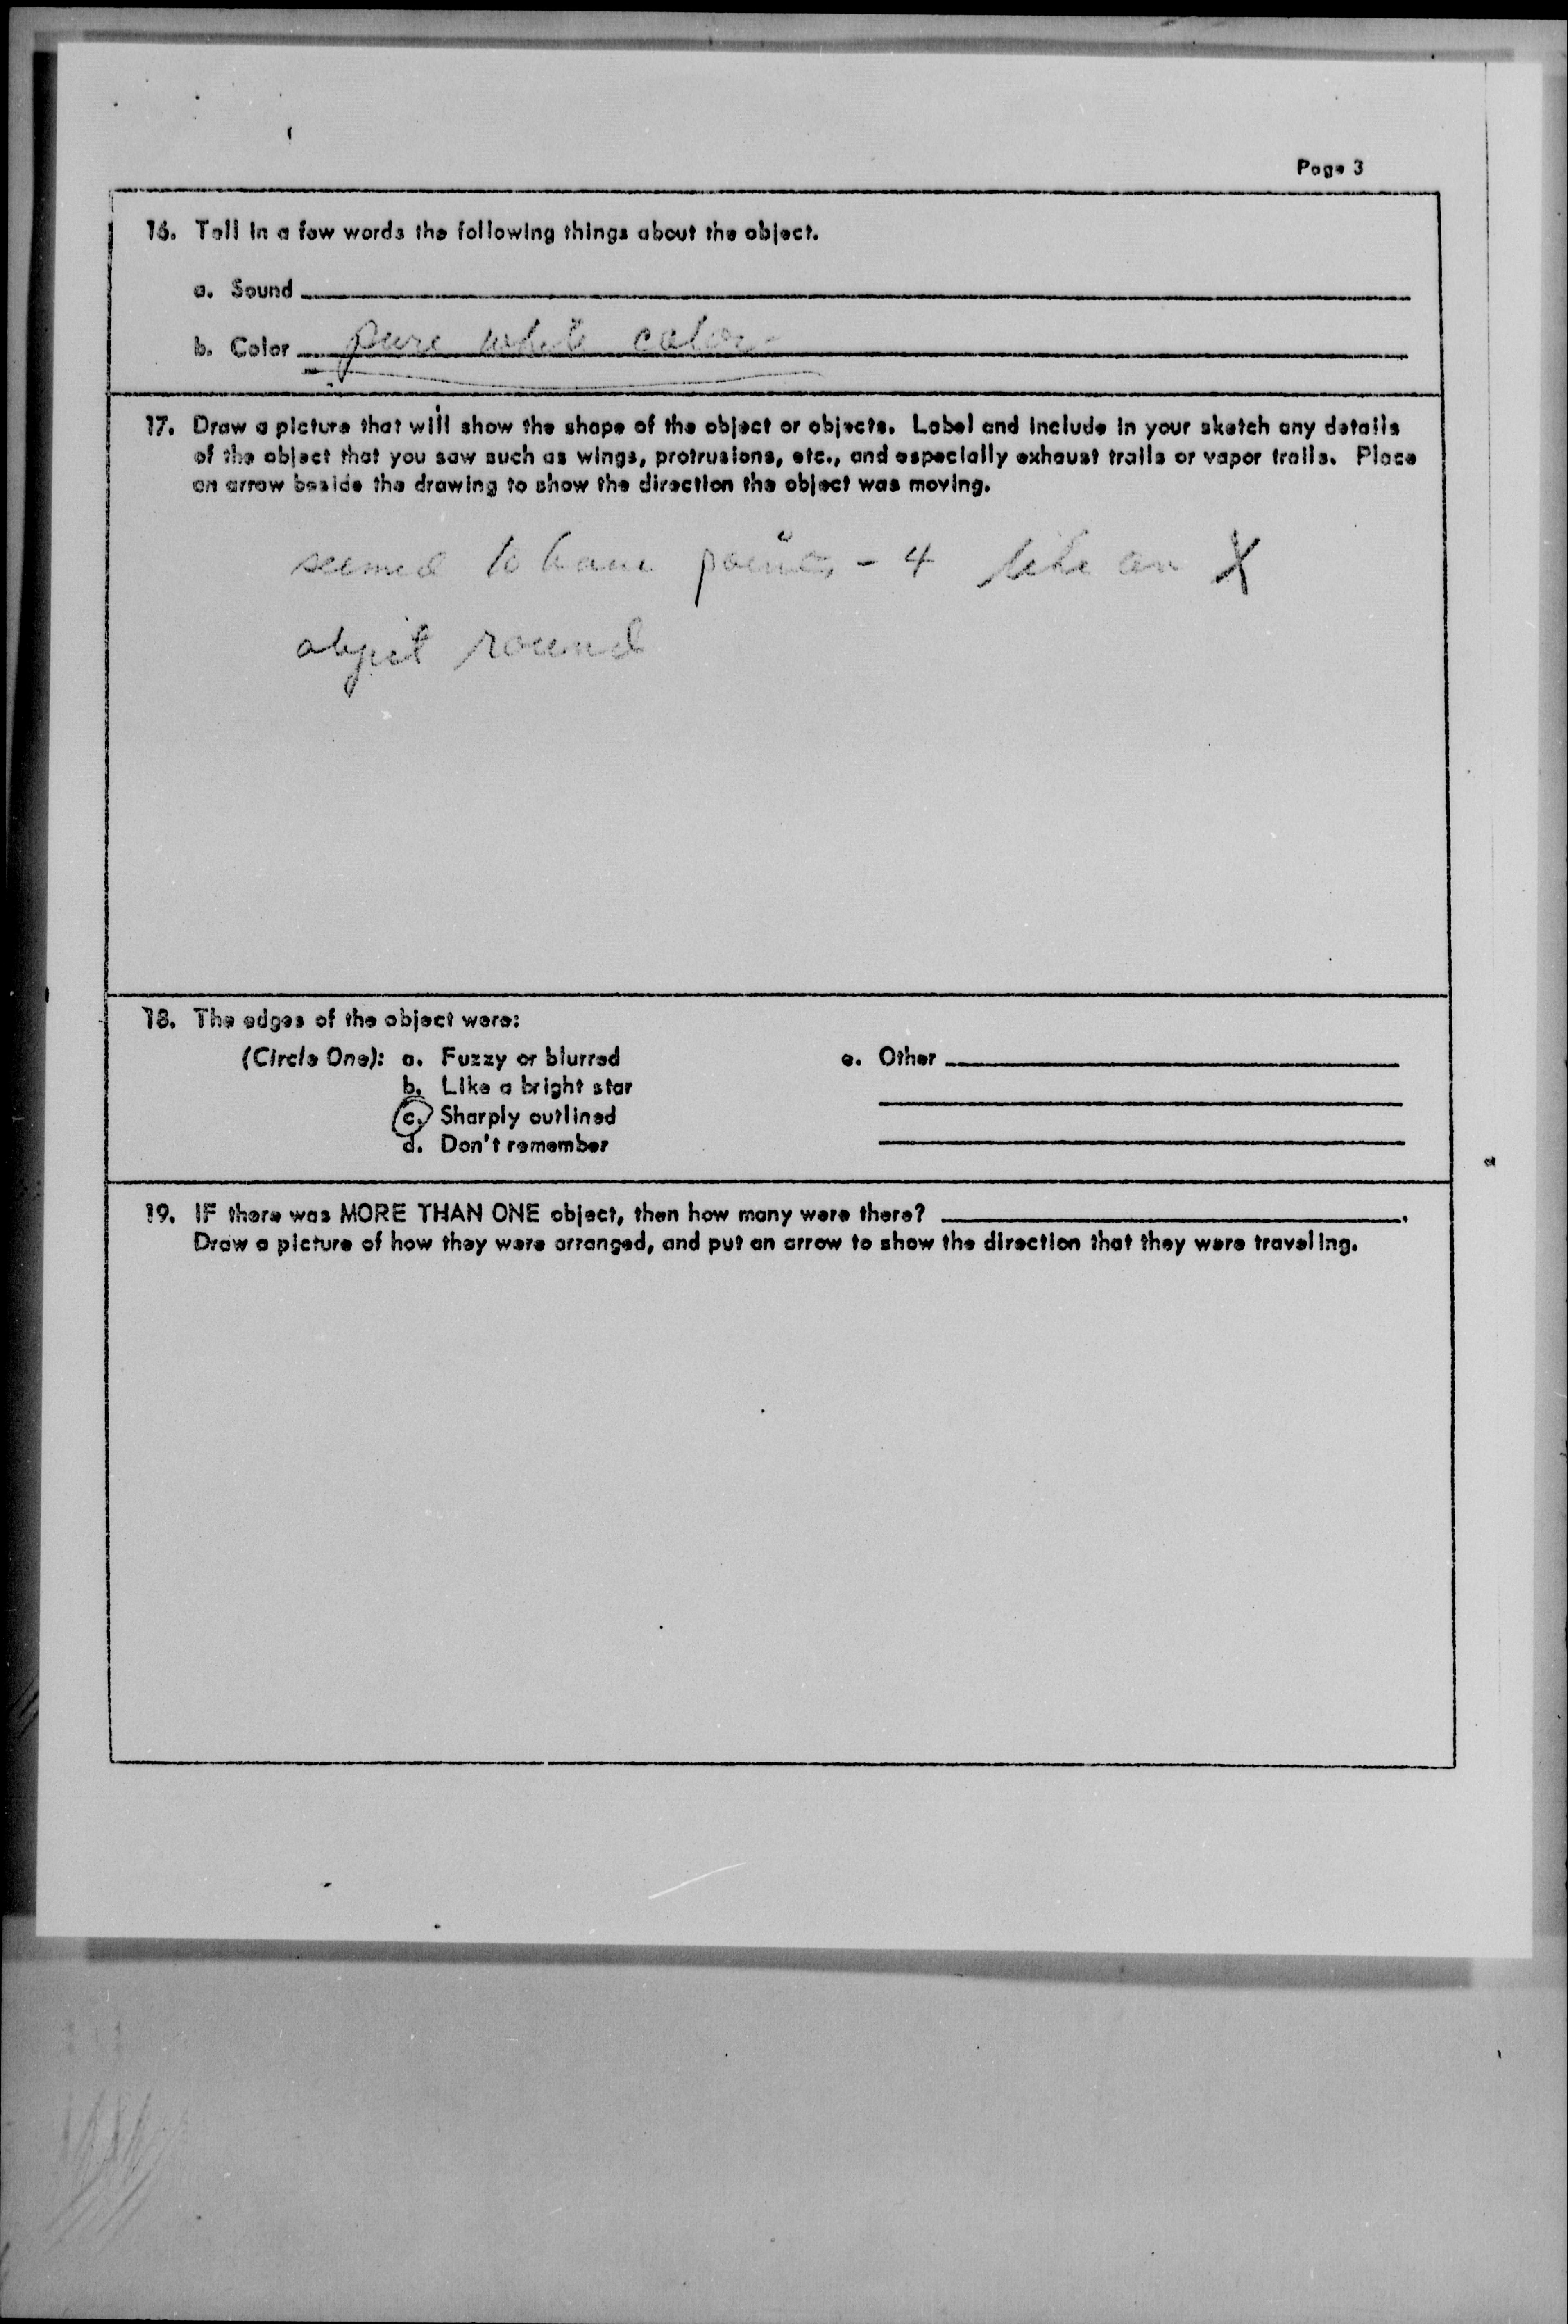 Page 3
16. Tell in a few words the following things about the object.
a. Sound
b. Color pure white color
17. Draw a picture that will show the shape of the object or objects. Label and include in your sketch any details
of the object that you saw such as wings, protrusions, etc., and especially exhaust trails or vapor trails. Place
an arrow beside the drawing to show the direction the object was moving.
seemed to have points - 4 like an X
object round
18. The edges of the object were:
(Circle One): a. Fuzzy or blurred e. Other
b. Like a bright star
c. Sharply outlined
d. Don't remember
19. IF there was MORE THAN ONE object, then how many were there? .
Draw a picture of how they were arranged, and put an arrow to show the direction that they were traveling.